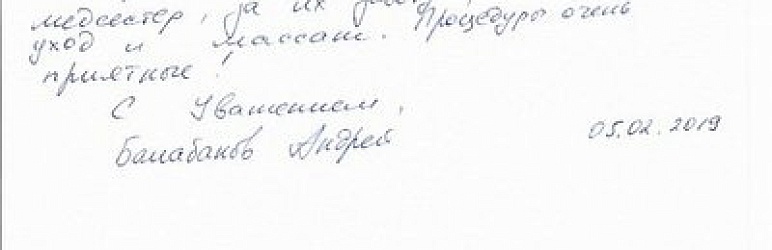 медсестер, за их
уход и массаж. Процедуры очень
приятные!
С Уважением,
Балабанов Андрей
05.02.2019